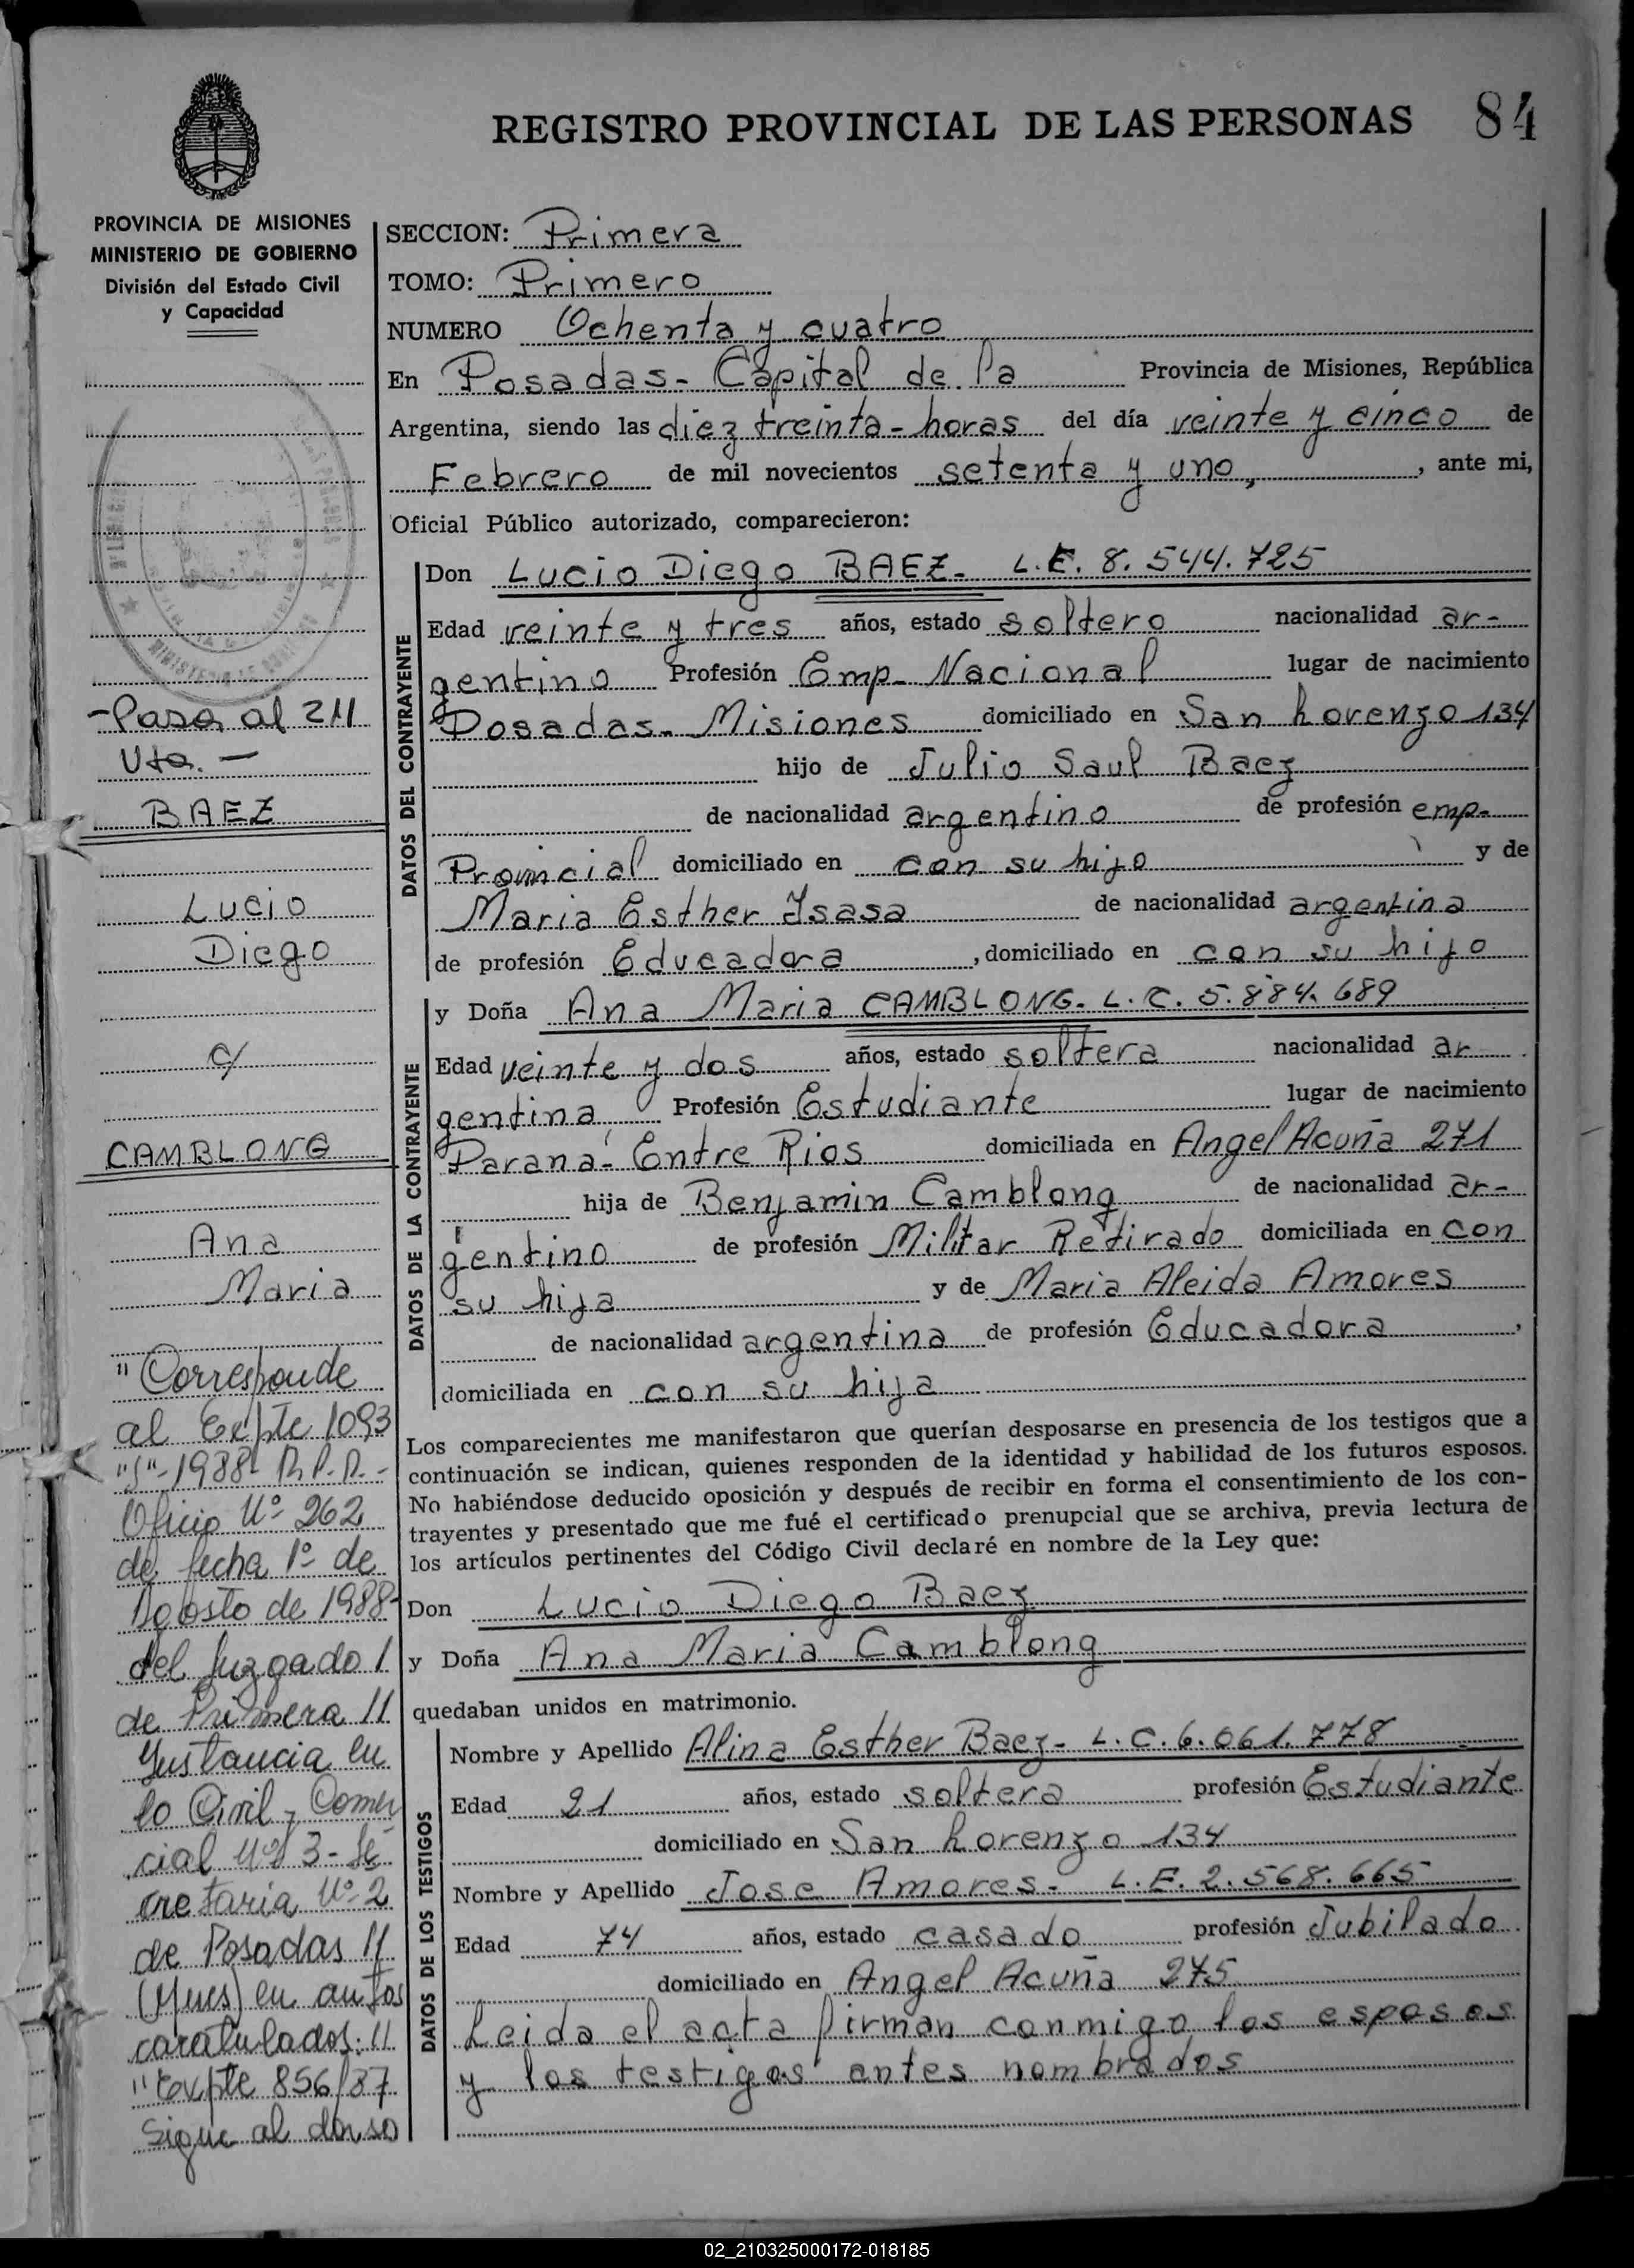 REGISTRO PROVINCIAL DE LAS PERSONAS 84
PROVINCIA DE MISIONES
MINISTERIO DE GOBIERNO
División del Estado Civil
y Capacidad
-Pasa al 211
Vta. -
BAEZ
Lucio
Diego
c/
CAMBLONG
Ana
Maria
"Corresponde
al Expte 1093
"S"-1988- R.P.P.-
Oficio Nº 262
de fecha 1º de
Agosto de 1988-
del Juzgado /
de Primera //
Instancia en
lo Civil y Comer
cial Nº 3 - Se
cretaría Nº 2
de Posadas //
(Mnes) en autos
caratulados: //
"Expte 856/87
Sigue al dorso
SECCION: Primera
TOMO: Primero
NUMERO Ochenta y cuatro
En Posadas - Capital de la Provincia de Misiones, República
Argentina, siendo las diez treinta - horas del día veinte y cinco de
Febrero de mil novecientos setenta y uno, , ante mi,
Oficial Público autorizado, comparecieron:
DATOS DEL CONTRAYENTE
Don Lucio Diego BAEZ - L.E. 8.544.725
Edad veinte y tres años, estado soltero nacionalidad ar-
gentino Profesión Emp- Nacional lugar de nacimiento
Posadas - Misiones domiciliado en San Lorenzo 134
hijo de Julio Saul Baez
de nacionalidad argentino de profesión emp-
Provincial domiciliado en con su hijo y de
Maria Esther Isasa de nacionalidad argentina
de profesión Educadora , domiciliado en con su hijo
DATOS DE LA CONTRAYENTE
y Doña Ana Maria CAMBLONG - L.C. 5.884.689
Edad veinte y dos años, estado soltera nacionalidad ar
gentina Profesión Estudiante lugar de nacimiento
Paraná - Entre Rios domiciliada en Angel Acuña 271
hija de Benjamin Camblong de nacionalidad ar-
gentino de profesión Militar Retirado domiciliada en con
su hija y de Maria Aleida Amores
de nacionalidad argentina de profesión Educadora ,
domiciliada en con su hija
Los comparecientes me manifestaron que querían desposarse en presencia de los testigos que a
continuación se indican, quienes responden de la identidad y habilidad de los futuros esposos.
No habiéndose deducido oposición y después de recibir en forma el consentimiento de los con-
trayentes y presentado que me fué el certificado prenupcial que se archiva, previa lectura de
los artículos pertinentes del Código Civil declaré en nombre de la Ley que:
Don Lucio Diego Baez
y Doña Ana Maria Camblong
quedaban unidos en matrimonio.
DATOS DE LOS TESTIGOS
Nombre y Apellido Alina Esther Baez - L.C. 6.061.778
Edad 21 años, estado soltera profesión Estudiante
domiciliado en San Lorenzo 134
Nombre y Apellido Jose Amores - L.E. 2.568.665
Edad 74 años, estado casado profesión Jubilado
domiciliado en Angel Acuña 275
Leida el acta firman conmigo los esposos
y los testigos antes nombrados
02_210325000172-018185